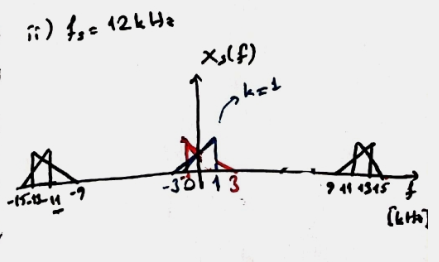 ii) fs = 12 kHz
Xs(f)
k=1
-15 -13 -11 -9 -3 0 1 3 9 11 13 15 f
[kHz]